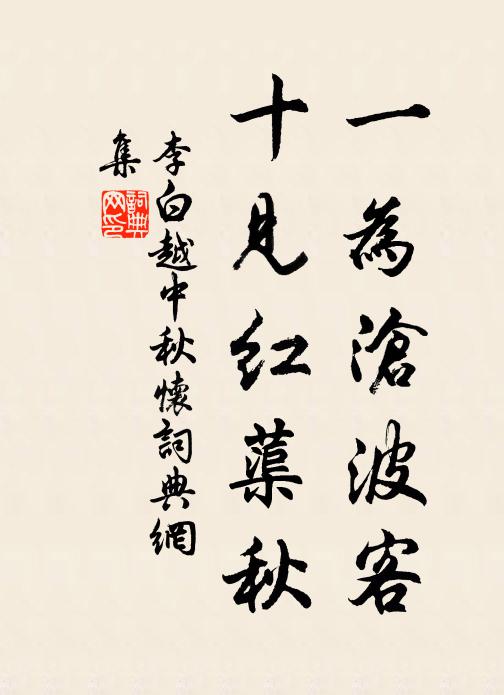 一為滄波客
十見紅蕖秋
李白越中秋懷詞典網
集
詞典
网印